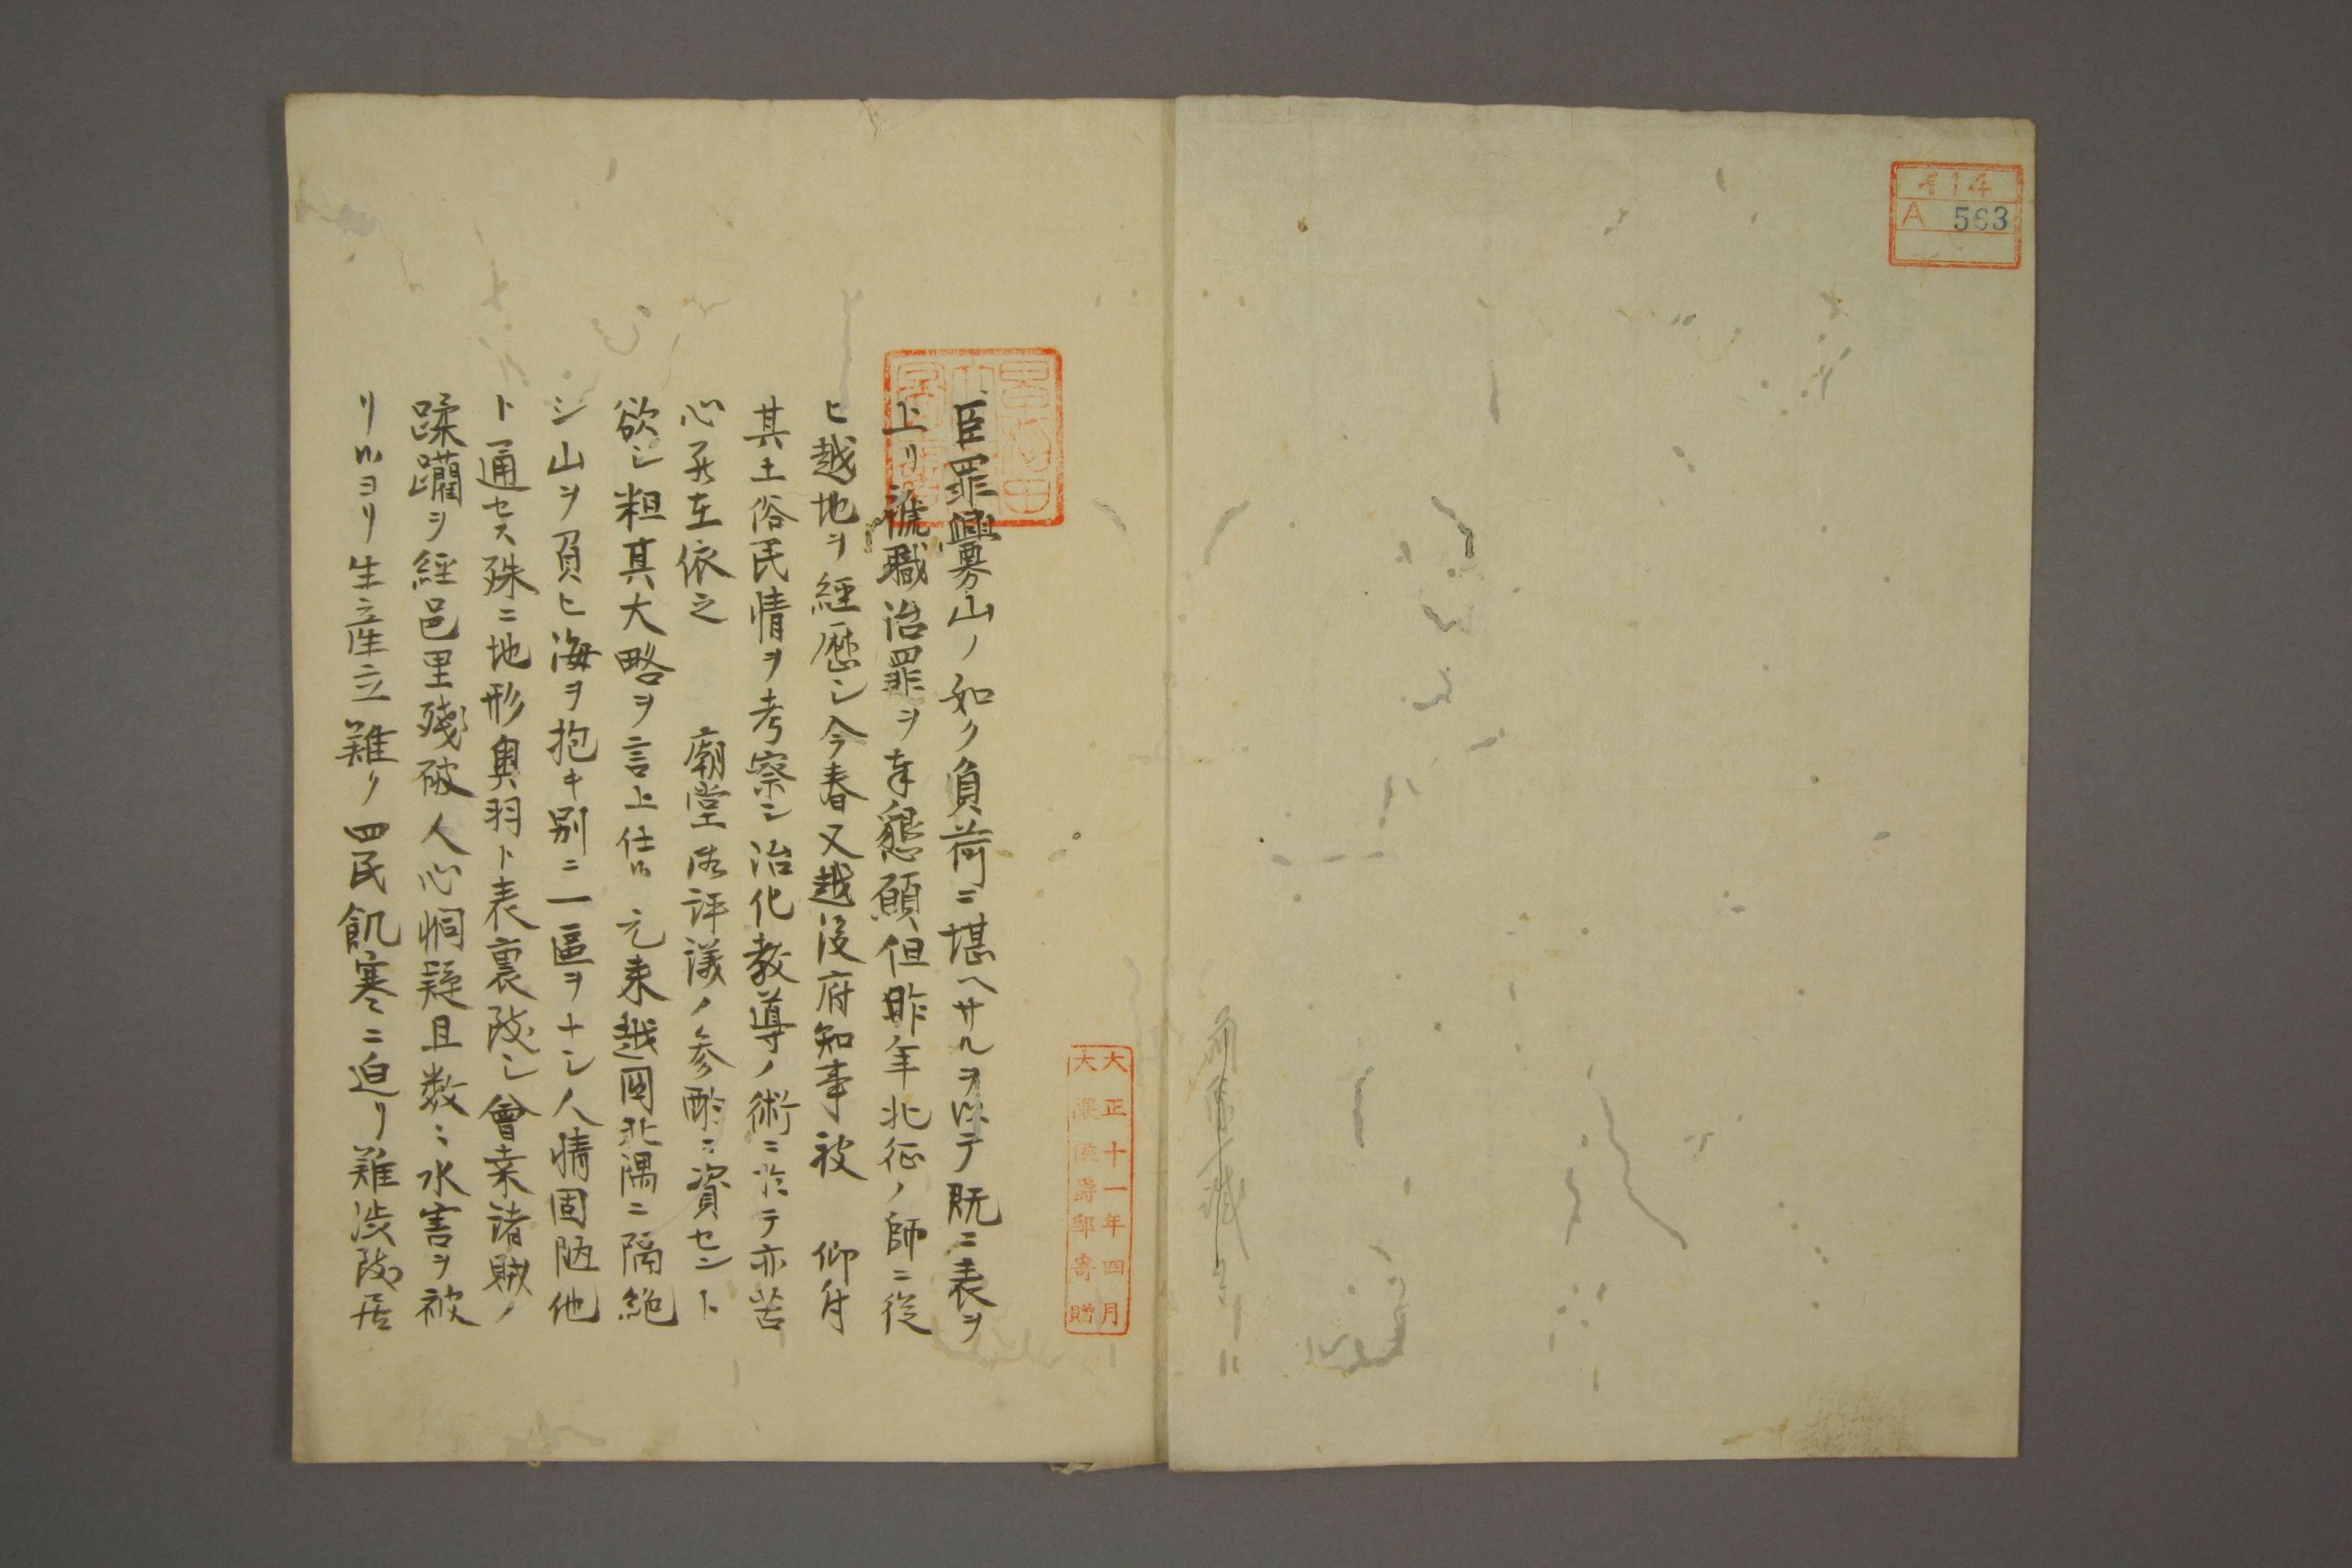 414
A 563
大正十一年四月
大隈侯爵邸寄贈
臣罪釁山ノ如ク負荷ニ堪ヘサルヲ以テ既ニ表ヲ
上リ褫職治罪ヲ奉懇願但昨年北征ノ師ニ従
ヒ越地ヲ経歴シ今春又越後府知事被 仰付
其土俗民情ヲ考察シ治化教導ノ術ニ於テ亦苦
心罷在依之 廟堂御評議ノ参酌ニ資セント
欲シ粗其大略ヲ言上仕候 元来越国北隅ニ隔絶
シ山ヲ負ヒ海ヲ抱キ別ニ一區ヲナシ人情固陋他
ト通セス殊ニ地形奥羽ト表裏致シ會桑諸賊ノ
蹂躙ヲ經邑里残破人心恫疑且数〻水害ヲ被
リ候ヨリ生産立難ク四民飢寒ニ迫リ難渋致居